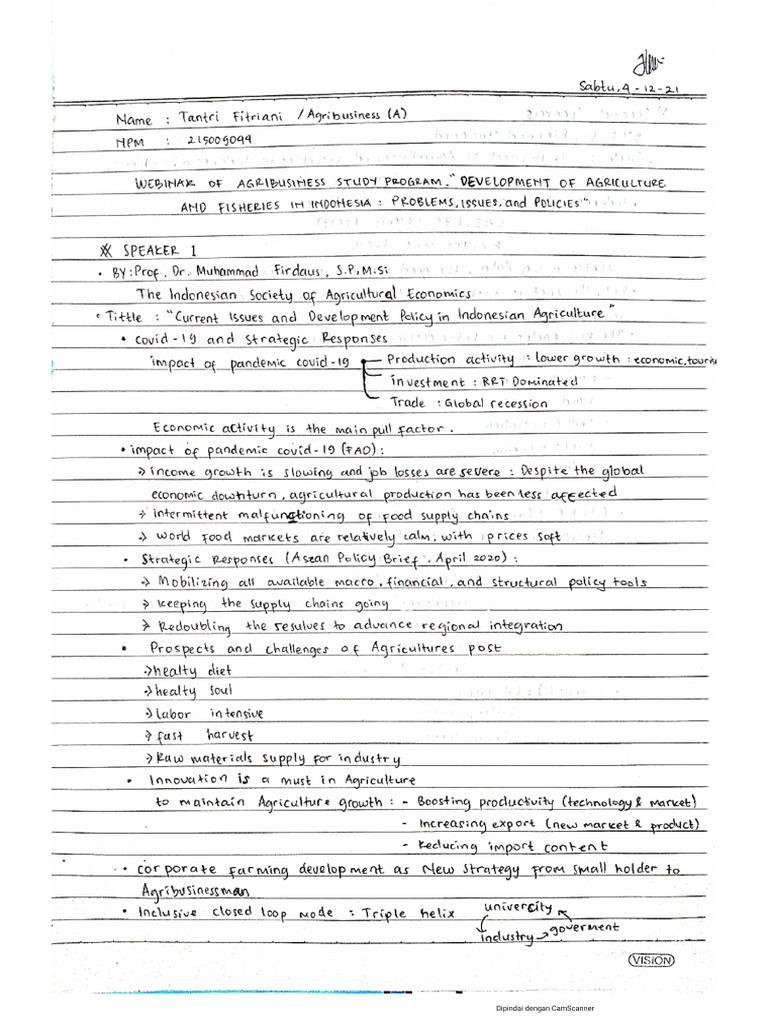 Sabtu, 4-12-21
Name : Tantri Fitriani / Agribusiness (A)
NPM : 215009099
WEBINAR OF AGRIBUSINESS STUDY PROGRAM. "DEVELOPMENT OF AGRICULTURE
AND FISHERIES IN INDONESIA : PROBLEMS, ISSUES, and POLICIES"
SPEAKER 1
• BY : Prof. Dr. Muhammad Firdaus, S.P, M.Si
The Indonesian Society of Agricultural Economics
• Tittle : "Current Issues and Development Policy in Indonesian Agriculture"
• Covid-19 and Strategic Responses
impact of pandemic covid-19 Production activity : lower growth : economic, touris
investment : RRT Dominated
Trade : Global recession
Economic activity is the main pull factor.
• impact of pandemic covid-19 (FAO) :
→ income growth is slowing and job losses are severe : Despite the global
economic downturn, agricultural production has been less affected
→ intermittent malfunctioning of food supply chains
→ world food markets are relatively calm, with prices soft
• Strategic Responses (Asean Policy Brief, April 2020) :
→ Mobilizing all available macro, financial, and structural policy tools
→ keeping the supply chains going
→ Redoubling the resulves to advance regional integration
• Prospects and challenges of Agricultures post
→ healty diet
→ healty soul
→ labor intensive
→ fast harvest
→ Raw materials supply for industry
• Innovation is a must in Agriculture
to maintain Agriculture growth : - Boosting productivity (technology & market)
- Increasing export (new market & product)
- Reducing import content
• corporate farming development as New Strategy from small holder to
Agribusinessman
• Inclusive closed loop mode : Triple helix univercity
industry → goverment
VISION
Dipindai dengan CamScanner